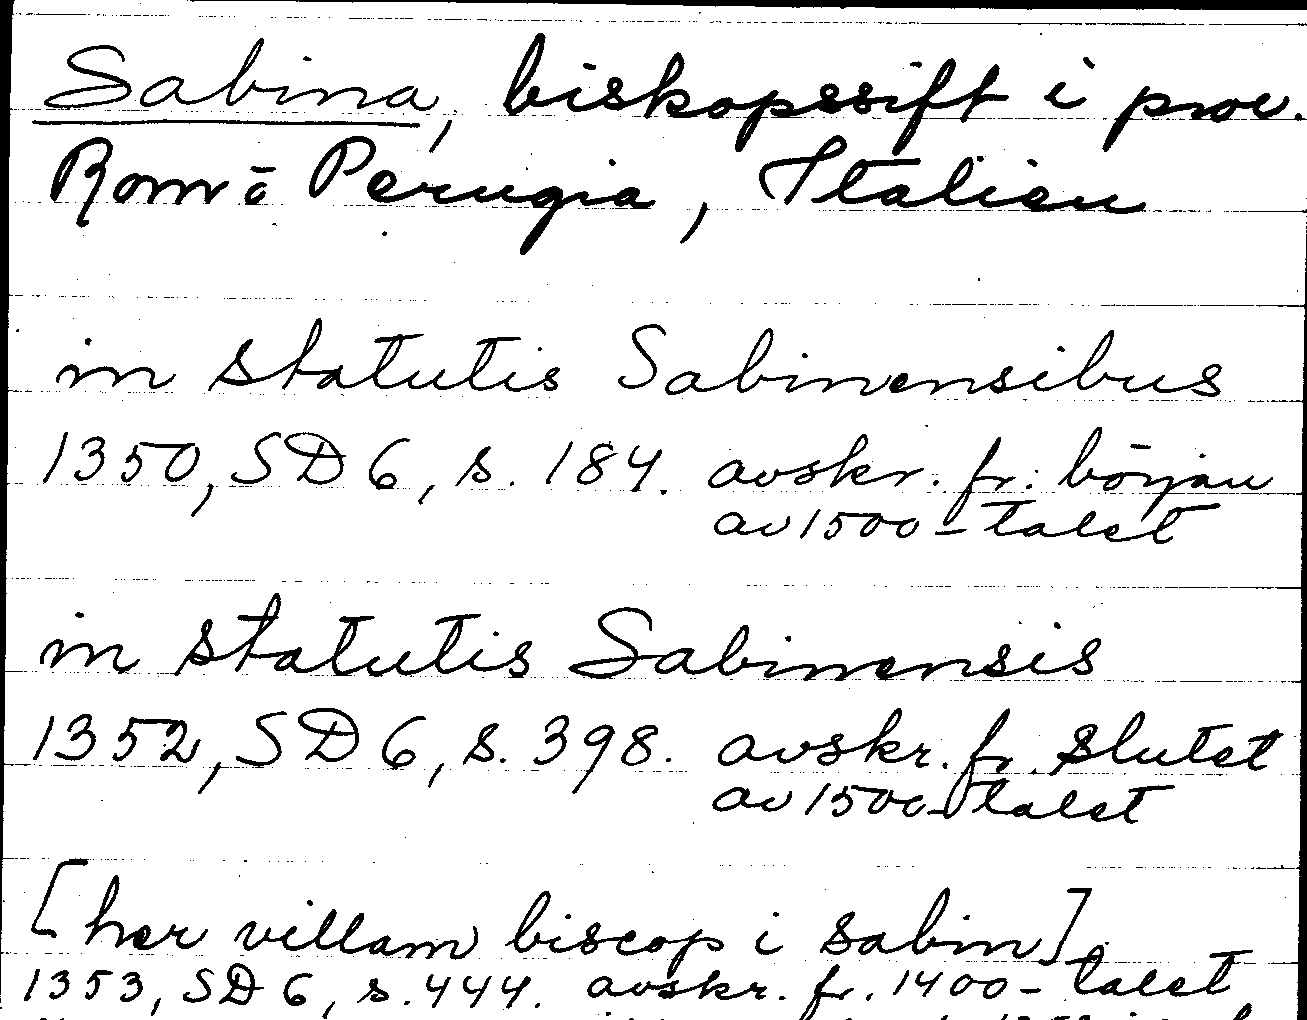 Sabina, biskopssift i prov.
Rom ō Perugia, Italien
in statutis Sabinensibus
1350, SD 6, s. 184. avskr. fr. början
av 1500-talet
in statutis Sabinensis
1352, SD 6, s. 398. avskr. fr. slutet
av 1500-talet
[her villam biscop i sabin]
1353, SD 6, s. 444. avskr. fr. 1400-talet